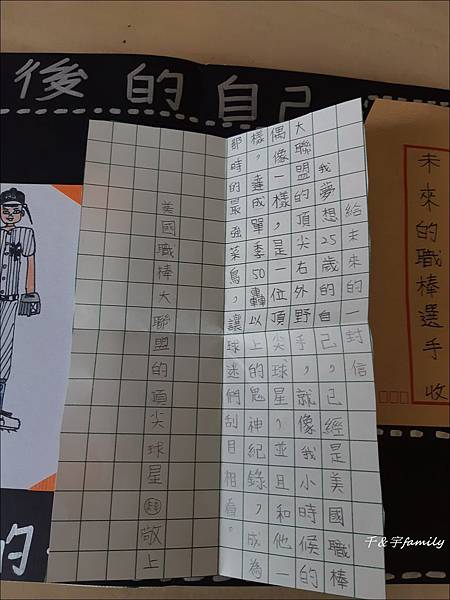 後的自己
未來的職棒選手 收
給未來的一封信
我夢想25歲的自己，已經是美國職棒
大聯盟的頂尖右外野手，就像我小時候的
偶像一樣，是一位頂尖球星，並且和他一
樣，達成單季50轟以上的鬼神紀錄，成為
那時的最強菜鳥，讓球迷們刮目相看。
美國職棒大聯盟的頂尖球星敬上
的
千&宇family